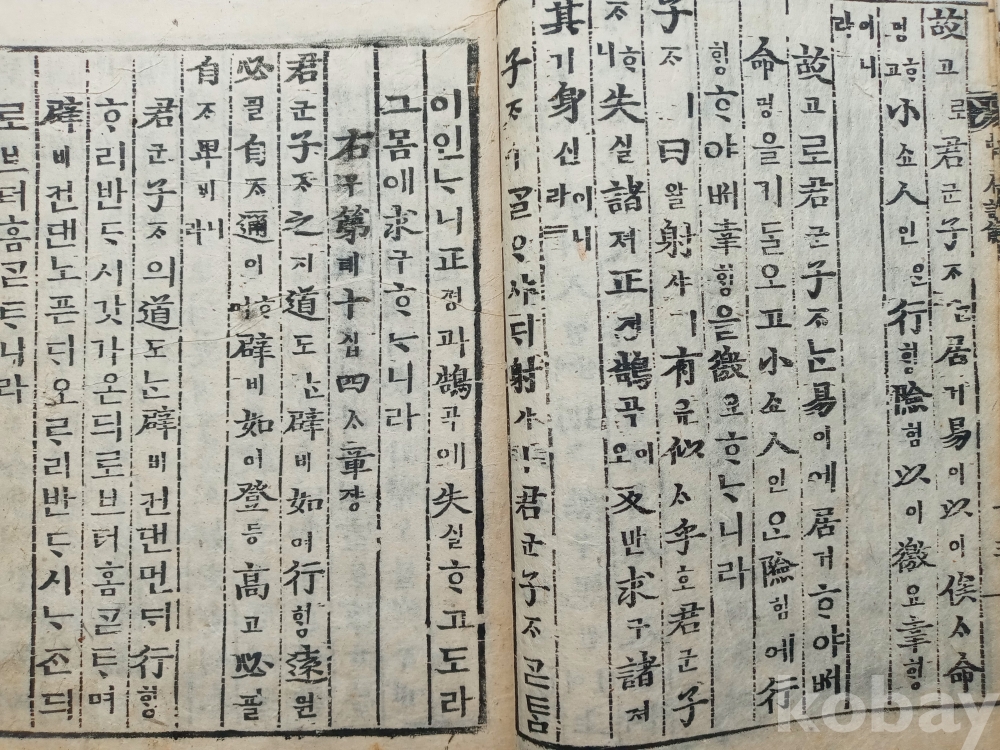 故고로君군子ᄌᆞᄂᆞᆫ居거易이以이俟ᄉᆞ命
명ᄒᆞ고小쇼人인은行ᄒᆡᆼ險험以이徼요幸ᄒᆡᆼ
이니라
故고로君군子ᄌᆞᄂᆞᆫ易이예居거ᄒᆞ야ᄡᅥ
命명을기들오고小쇼人인은險험에行
ᄒᆡᆼᄒᆞ야ᄡᅥ幸ᄒᆡᆼ을徼요ᄒᆞᄂᆞ니라
子ᄌᆞㅣ曰왈射샤ㅣ有유似ᄉᆞ乎호君군子
ᄌᆞᄒᆞ니失실諸져正졍鵠곡이오反반求구諸져
其기身신이니라
子ᄌᆞㅣᄀᆞᆯᄋᆞ샤ᄃᆡ射샤ㅣ君군子ᄌᆞᄀᆞᆮ톰
이인ᄂᆞ니正졍과鵠곡애失실ᄒᆞ고도라
그몸애求구ᄒᆞᄂᆞ니라
右우第뎨十십四ᄉᆞ章쟝
君군子ᄌᆞ之지道도ᄂᆞᆫ辟비如여行ᄒᆡᆼ遠원
必필自ᄌᆞ邇이ᄒᆞ며辟비如여登등高고必필
自ᄌᆞ卑비니라
君군子ᄌᆞ의道도ᄂᆞᆫ辟비컨댄먼ᄃᆡ行ᄒᆡᆼ
ᄒᆞ리반ᄃᆞ시갓가온ᄃᆡ로브터홈ᄀᆞᆮᄐᆞ며
辟비컨댄노픈ᄃᆡ오ᄅᆞ리반ᄃᆞ시ᄂᆞᄌᆞᆫᄃᆡ
로브터홈ᄀᆞᆮᄐᆞ니라
kobay